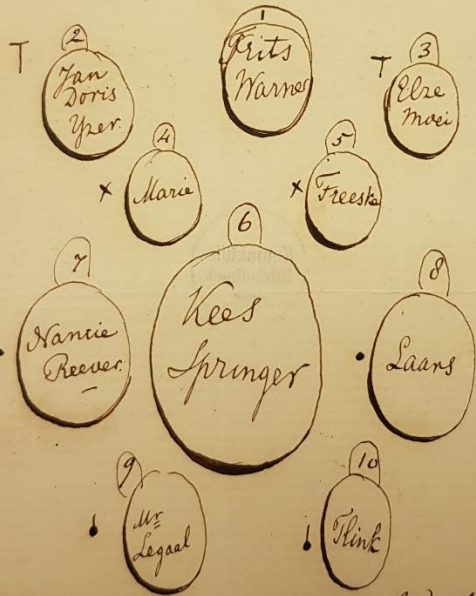 1
Frits
Warner
T
2
Jan
Doris
Yzer
T
3
Elze
Moei
4
x Marie
5
x Freeske
6
Kees
Springer
7
Nancie
Reever
8
Laars
9
Mr
Legaal
10
Flink